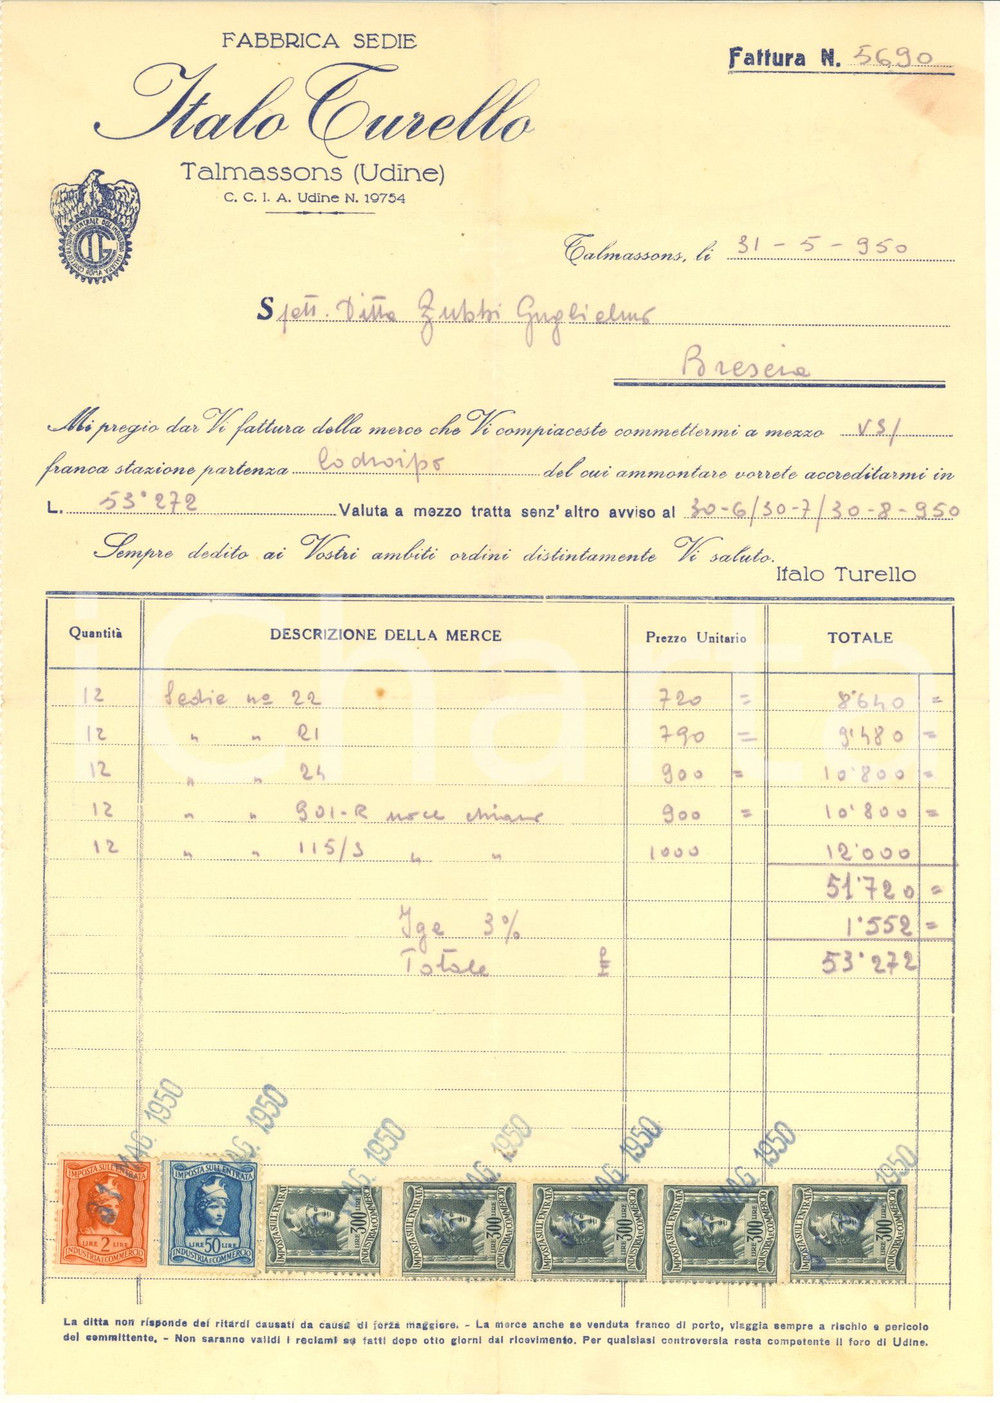 FABBRICA SEDIE
Italo Turello
Talmassons (Udine)
C. C. I. A. Udine N. 19754
Fattura N. 5690
CONFEDERAZIONE GENERALE DELL'INDUSTRIA ITALIANA ROMA
CGII
Talmassons, li 31-5-950
Spett. Ditta Zubbi Guglielmo
Brescia
Mi pregio dar Vi fattura della merce che Vi compiaceste commettermi a mezzo vs/
franca stazione partenza Codroipo del cui ammontare vorrete accreditarmi in
L. 53'272 Valuta a mezzo tratta senz'altro avviso al 30-6/30-7/30-8-950
Sempre dedito ai Vostri ambiti ordini distintamente Vi saluto.
Italo Turello
Quantità DESCRIZIONE DELLA MERCE Prezzo Unitario TOTALE
12 Sedie no 22 720 = 8'640 =
12 " " 21 790 = 9'480 =
12 " " 24 900 = 10'800 =
12 " " 901-R noce chiaro 900 = 10'800 =
12 " " 115/S " " 1000 12'000
51'720 =
Ige 3% 1'552 =
Totale £ 53'272
iCharta
31 MAG. 1950 MAG. 1950 MAG. 1950 MAG. 1950 MAG. 1950 MAG. 1950 MAG. 1950
IMPOSTA SULL'ENTRATA LIRE 2 LIRE INDUSTRIA E COMMERCIO
IMPOSTA SULL'ENTRATA LIRE 50 LIRE INDUSTRIA E COMMERCIO
IMPOSTA SULL'ENTRATA LIRE 300 LIRE INDUSTRIA E COMMERCIO
IMPOSTA SULL'ENTRATA LIRE 300 LIRE INDUSTRIA E COMMERCIO
IMPOSTA SULL'ENTRATA LIRE 300 LIRE INDUSTRIA E COMMERCIO
IMPOSTA SULL'ENTRATA LIRE 300 LIRE INDUSTRIA E COMMERCIO
IMPOSTA SULL'ENTRATA LIRE 300 LIRE INDUSTRIA E COMMERCIO
La ditta non risponde dei ritardi causati da causa di forza maggiore. - La merce anche se venduta franco di porto, viaggia sempre a rischio e pericolo
del committente. - Non saranno validi i reclami se fatti dopo otto giorni dal ricevimento. Per qualsiasi controversia resta competente il foro di Udine.